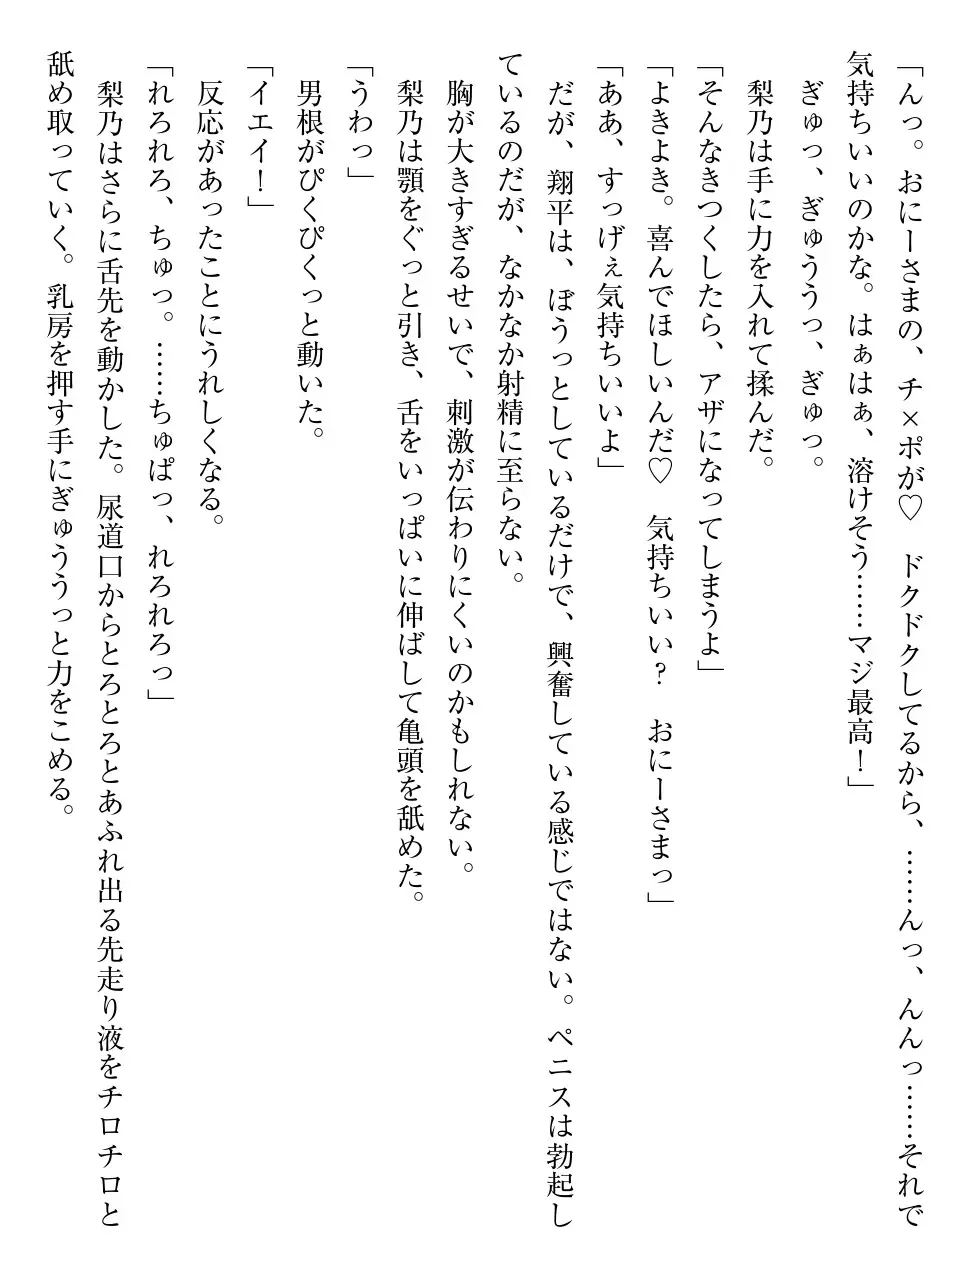 「んっ。おにーさまの、チ×ポが♡　ドクドクしてるから、……んっ、んんっ……それで
気持ちいいのかな。はぁはぁ、溶けそう……マジ最高！」
ぎゅっ、ぎゅううっ、ぎゅっ。
梨乃は手に力を入れて揉んだ。
「そんなきつくしたら、アザになってしまうよ」
「よきよき。喜んでほしいんだ♡　気持ちいい？　おにーさまっ」
「ああ、すっげぇ気持ちいいよ」
だが、翔平は、ぼうっとしているだけで、興奮している感じではない。ペニスは勃起し
ているのだが、なかなか射精に至らない。
胸が大きすぎるせいで、刺激が伝わりにくいのかもしれない。
梨乃は顎をぐっと引き、舌をいっぱいに伸ばして亀頭を舐めた。
「うわっ」
男根がぴくぴくっと動いた。
「イエイ！」
反応があったことにうれしくなる。
「れろれろ、ちゅっ。……ちゅぱっ、れろれろっ」
梨乃はさらに舌先を動かした。尿道口からとろとろとあふれ出る先走り液をチロチロと
舐め取っていく。乳房を押す手にぎゅううっと力をこめる。